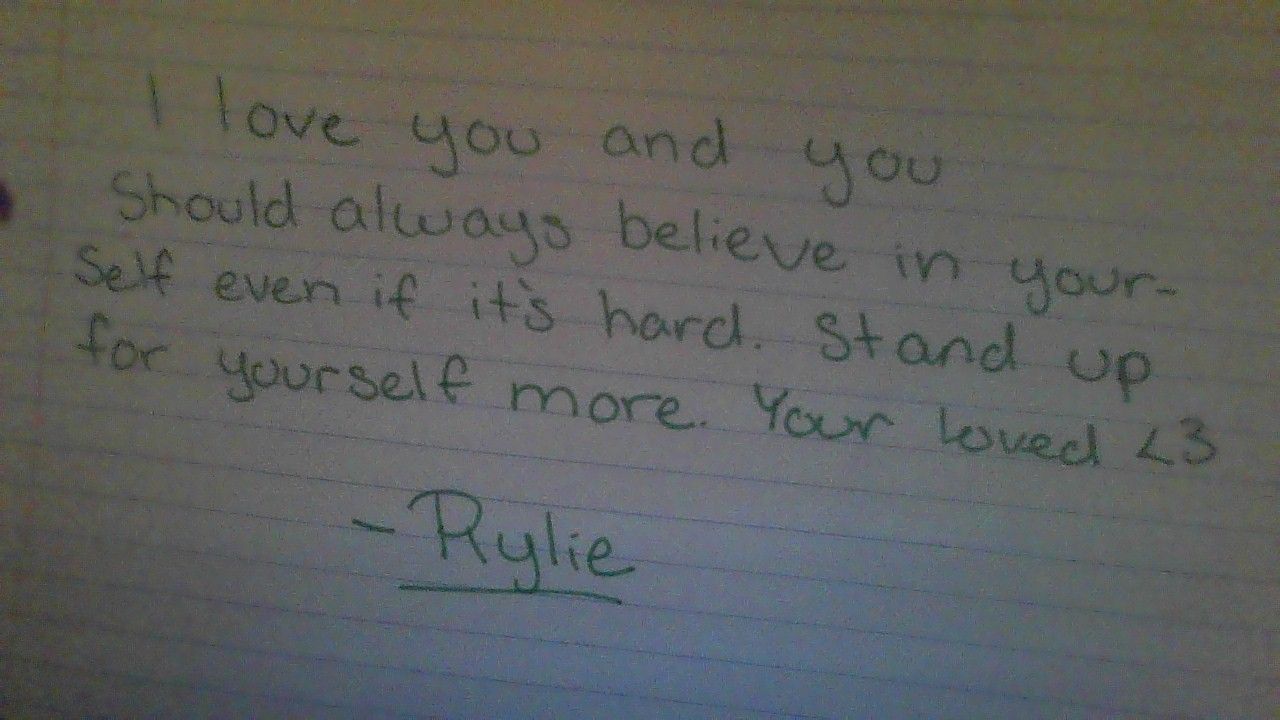 I love you and you
Should always believe in your-
Self even if it's hard. Stand up
for yourself more. Your loved <3
- Rylie